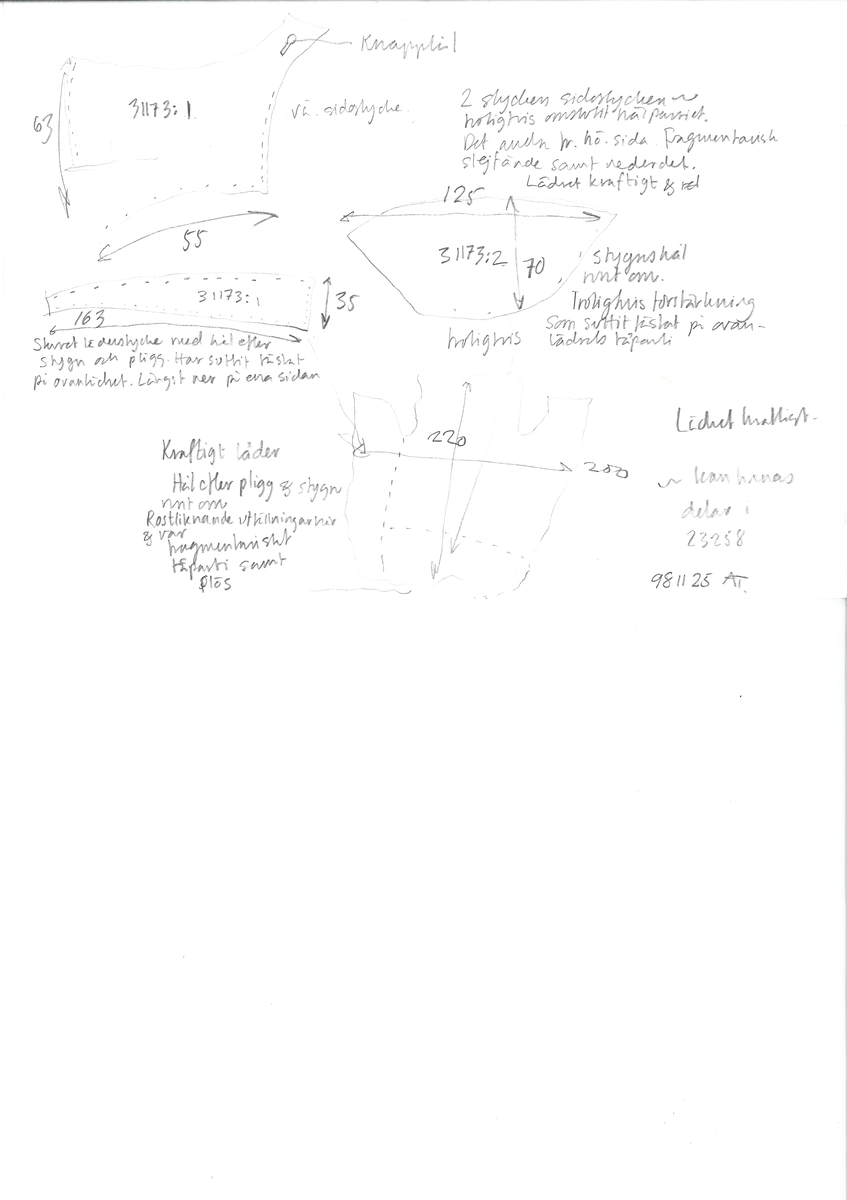 Knapphål
63
31173:1
vä. sidostycke.
2 stycken sidostycken ~
troligtvis omslutit hälpartiet.
Det andra fr. hö. sida. Fragmentarisk
slejfände samt nederdel.
Lädret kraftigt &
55
125
31173:2
70
stygnshål
runt om.
Troligtvis förstärkning
Som suttit fästat på ovan-
lädrets tåparti
troligtvis
31173:1
35
163
Skuret läderstycke med hål efter
stygn och pligg. Har suttit fästat
på ovanlädret. Längst ner på ena sidan
220
200
Kraftigt läder
Hål efter pligg & stygn
runt om
Rostliknande utfällningar här
& var
fragmentariskt
tåparti samt
plös
Lädret kraftigt.
~ kan finnas
delar i
23258
981125 AT.